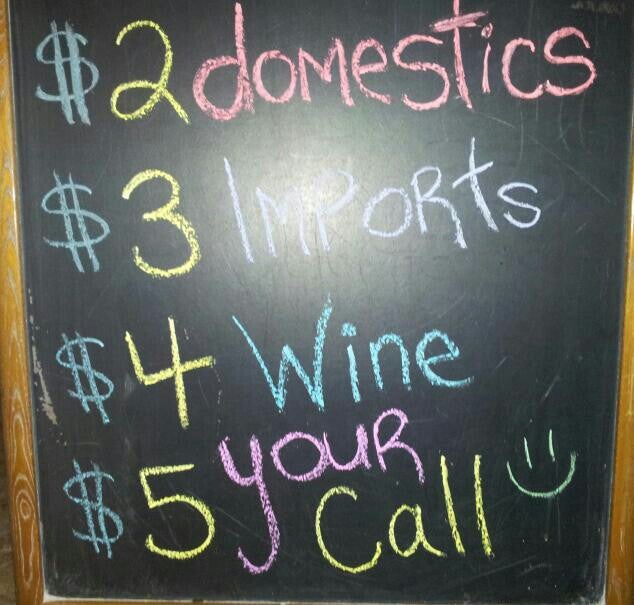 $2 domestics
$3 Imports
$4 Wine
$5 your Call